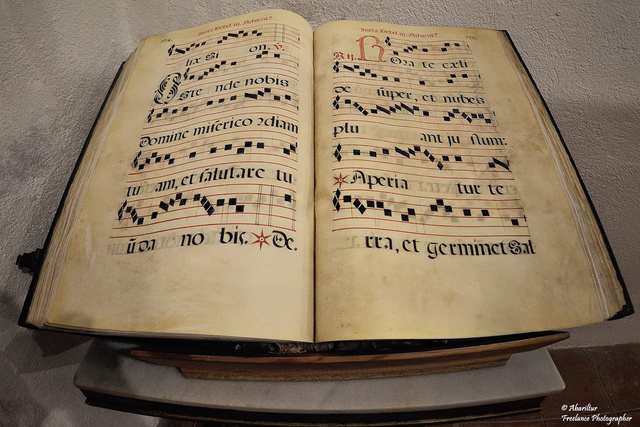 lix Si on. v.
Oste nde nobis
Domine misericordiam
tu am, et salutare tu
ū da no bis. De.
Rora te cæli
de super, et nubes
plu ant ju stum:
Aperia tur te
rra, et germinet Sal
© Abariltur
Freelance Photographer